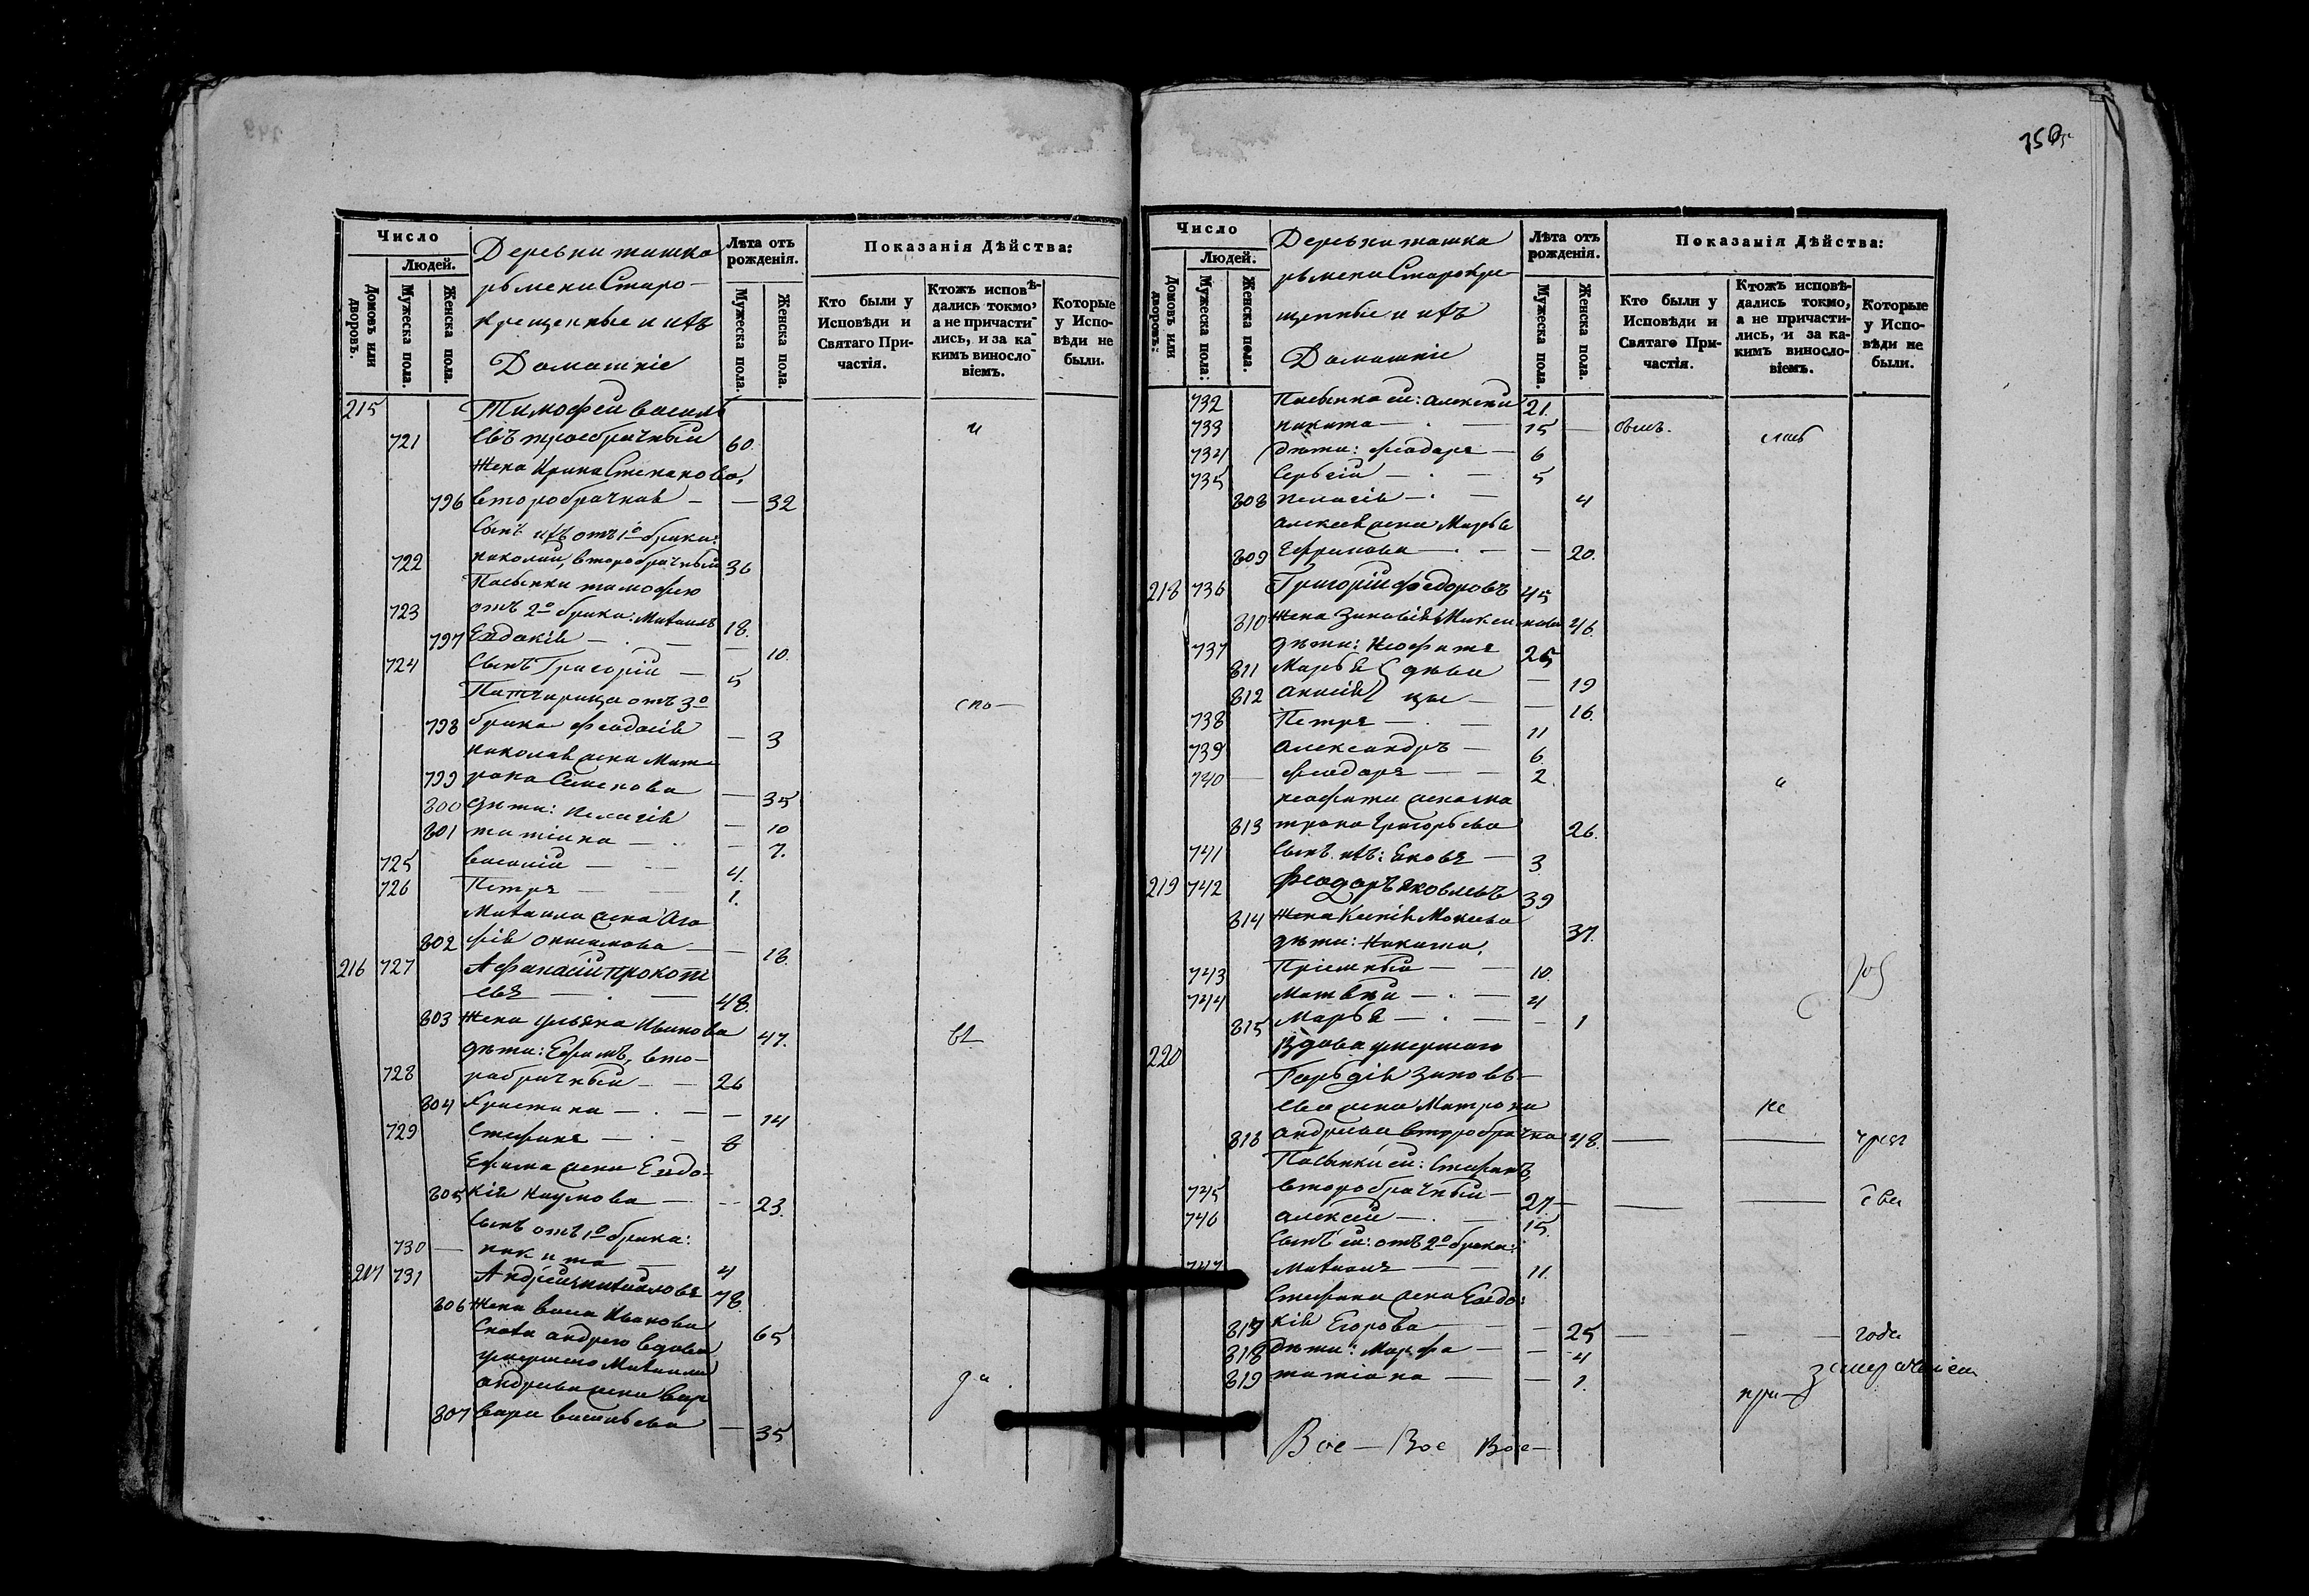 Число
Людей.
Домовъ или дворовъ.
Мужеска пола.
Женска пола.
Деревни ташка
рмени Старо-
крещенные и ихъ
Домашніе
Лѣта отъ рожденія.
Мужеска пола.
Женска пола.
Показанія Дѣйства:
Кто были у Исповѣди и Святаго Причастія.
Ктожъ исповѣдались токмо, а не причастились, и за какимъ винословіемъ.
Которые у Исповѣди не были.
215 Тимофей василь
721 евъ троебрачный 60
и
Жена Ирина Степанова,
796 второбрачная — — 32
Сынъ ихъ отъ 1о брака:
722 николай, второбрачный 36
Пасынки тимофею
723 отъ 2о брака: Михаилъ 18.
797 Евдокія — — 10.
724 Сынъ Григорій — 5
Патчирица отъ 3о
спо—
798 брака Феодосія — 3
николая жена Мат
799 рона Семенова — 35
800 дѣти: пелагія — 10
801 татіана — — 7.
725 василій — — 4.
726 Петръ — — 1.
Михаила жена Ага
802 фія — — 18.
216 727 Афанасій прокоп
евъ — . — 48.
803 Жена ульяна Иванова 47.
дѣти: Ефимъ, вто-
728 рабрачный — — 26
804 Христина — . — — 14
729 Стефанъ — . — 8
Ефима жена Евдо-
805 кія Наумова — — 23.
Сынъ отъ 1о брака:
730 — никита — 4
217 731 Андрей михайловъ 78.
806 Жена васса Иванова 65
Сноха андрею вдова
умершаго Михаила
андреева жена вар
да.
807 вара васильева — 35
750
Число
Людей.
Домовъ или дворовъ.
Мужеска пола.
Женска пола.
Деревни ташка
рмени Старокре-
щенные и ихъ
Домашніе
Лѣта отъ рожденія.
Мужеска пола.
Женска пола.
Показанія Дѣйства:
Кто были у Исповѣди и Святаго Причастія.
Ктожъ исповѣдались токмо, а не причастились, и за какимъ винословіемъ.
Которые у Исповѣди не были.
732 Пасынка ей: алексей 21.
733 никита — . — 15 —
734 дѣти: феодоръ — 6
735 Сергій — . — 5
808 пелагія — . — 4
алексея жена Марья
809 Ефремова — . — — 20.
218 736 Григорій Федоровъ 45
810 Жена Зиновія 46.
737 дѣти: Неофитъ 25
811 Марья } дѣви — 19
812 анисія } цы — — 16.
738 Петръ — . — 11
739 александръ — 6.
740 — феодоръ — — 2.
неофита жена ма
813 трона григорьева 26.
741 Сынъ ихъ: Яковъ — 3
219 742 Феодоръ яковлевъ 39
814 Жена Ксенія Мокеева 37.
дѣти: Никита,
743 Пріемный — — 10.
744 Матвѣй — . — 4
815 Марья — . — — 1
220 Вдова умершаго
Гордія Зиновь-
ева жена Матрона
не
816 андреева второбрачна 48. — —
Пасынки ей: Стефанъ,
745 второбрачный — 27 — — —
746 алексей — . — 15.
Сынъ ей: отъ 2о брака:
747 Михаилъ — — 11.
Стефана жена Евдо:
817 кія Егорова — — — 25 — — —
818 дѣти: Марфа — — 4
819 татіана — — 1.
при—
Вое — Вое Вое —